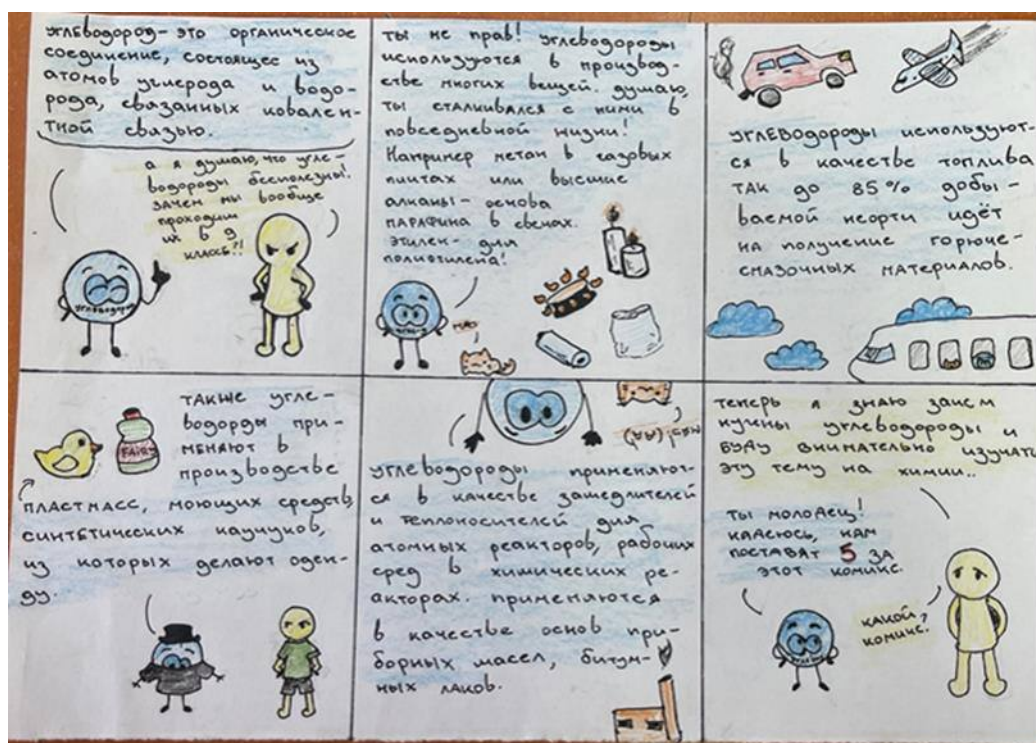 углеводород - это органическое
соединение, состоящее из
атомов углерода и водо-
рода, связанных ковален-
тной связью.
а я думаю, что угле-
водороды бесполезны!
зачем мы вообще
проходим
их в 9
классе?!
углеводород
ты не прав! углеводороды
используются в производ-
стве многих вещей. думаю,
ты сталкивался с ними в
повседневной жизни!
Например метан в газовых
плитах или высшие
алканы - основа
ПАРАФИНА в свечах.
этилен - для
полиэтилена!
УГЛЕВОДОРОДЫ ИСПОЛЬЗУЮТ-
СЯ В КАЧЕСТВЕ ТОПЛИВА
ТАК ДО 85% ДОБЫ-
ВАЕМОЙ НЕФТИ ИДЁТ
НА ПОЛУЧЕНИЕ ГОРЮЧЕ-
СМАЗОЧНЫХ МАТЕРИАЛОВ.
ТАКЖЕ УГЛЕ-
ВОДОРДЫ ПРИ-
МЕНЯЮТ В
ПРОИЗВОДСТВЕ
ПЛАСТМАСС, МОЮЩИХ СРЕДСТВ,
СИНТЕТИЧЕСКИХ КАУЧУКОВ,
ИЗ КОТОРЫХ ДЕЛАЮТ ОДЕЖ-
ДУ.
FAIRY
УГЛЕВОДОРОДЫ ПРИМЕНЯЮТ-
СЯ В КАЧЕСТВЕ ЗАМЕДЛИТЕЛЕЙ
И ТЕПЛОНОСИТЕЛЕЙ ДЛЯ
АТОМНЫХ РЕАКТОРОВ, РАБОЧИХ
СРЕД В ХИМИЧЕСКИХ РЕ-
АКТОРАХ. ПРИМЕНЯЮТСЯ
В КАЧЕСТВЕ ОСНОВ ПРИ-
БОРНЫХ МАСЕЛ, БИТУМ-
НЫХ ЛАКОВ.
ТЕПЕРЬ Я ЗНАЮ ЗАЧЕМ
НУЖНЫ УГЛЕВОДОРОДЫ И
БУДУ ВНИМАТЕЛЬНО ИЗУЧАТЬ
ЭТУ ТЕМУ НА ХИМИИ..
ТЫ МОЛОДЕЦ!
КАЖЕТСЯ, НАМ
ПОСТАВЯТ 5 ЗА
ЭТОТ КОМИКС.
КАКОЙ
КОМИКС?